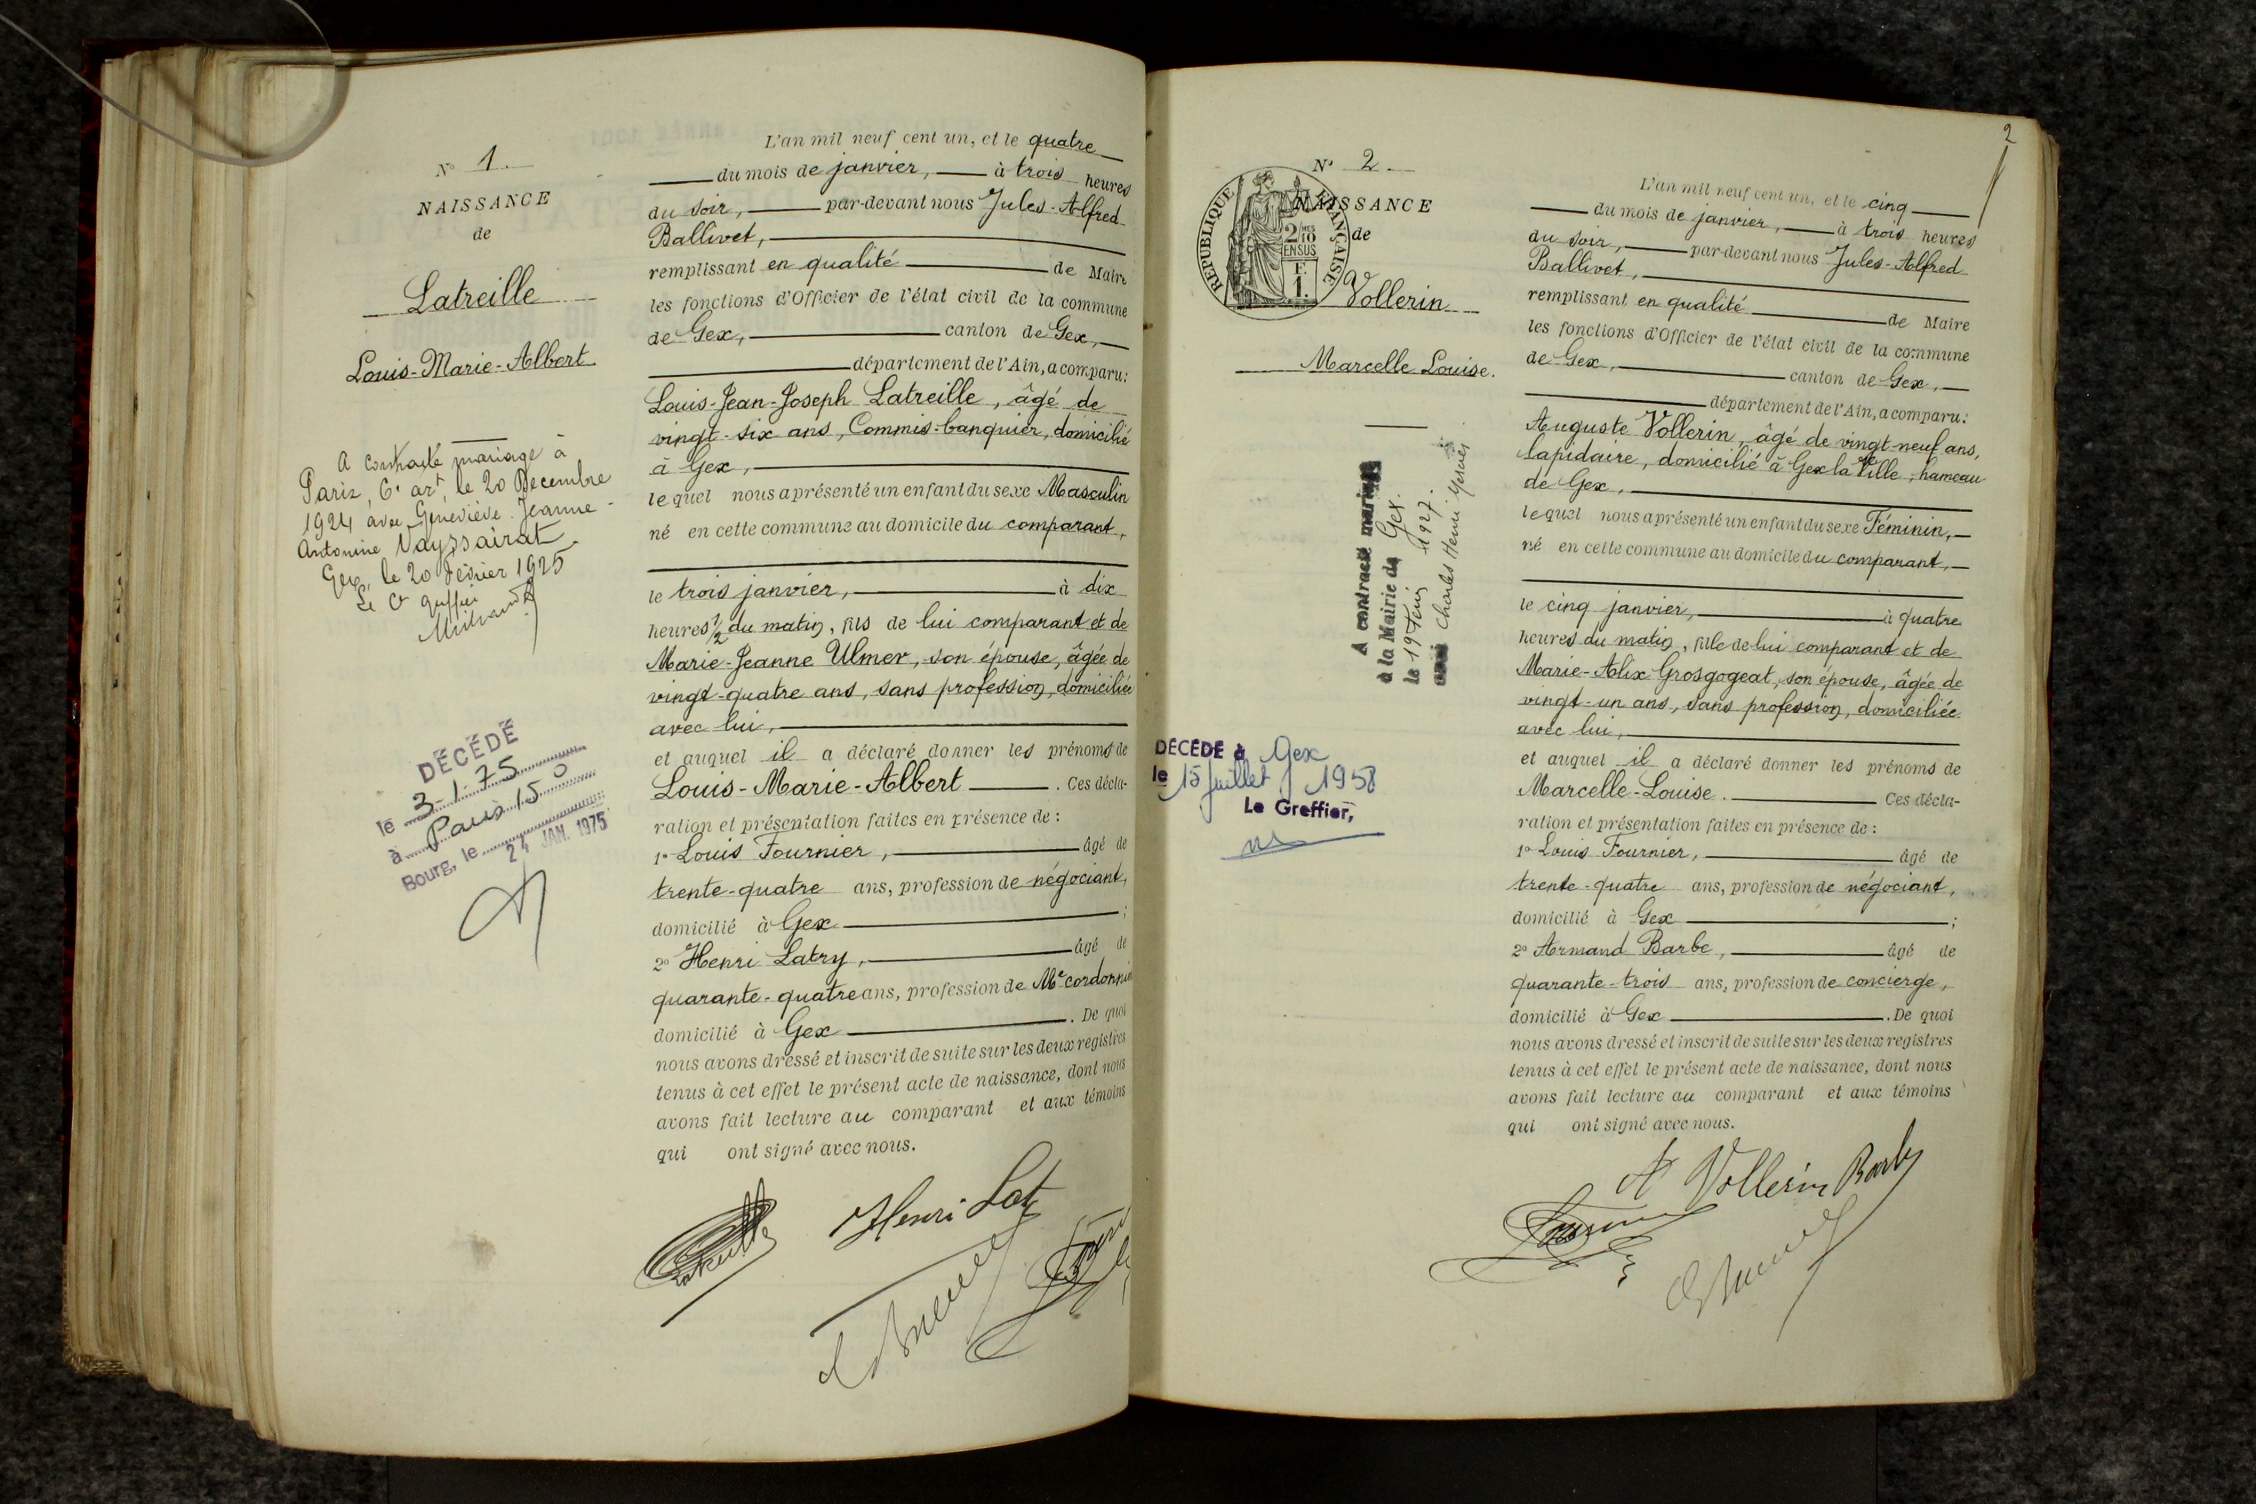 N° 1
NAISSANCE
de
Latreille
Louis-Marie-Albert
A contracté mariage à
Paris, 6e art, le 20 Décembre
1924 avec Geneviève Jeanne
Antonine Vayssairat
Gex, le 20 février 1925
Le Cr greffier
DÉCÉDÉ
le 3-1-75
à Paris 15
Bourg, le 24 JAN. 1975
L'an mil neuf cent un, et le quatre
du mois de janvier, à trois heures
du soir, par-devant nous Jules-Alfred
Ballivet,
remplissant en qualité de Maire
les fonctions d'Officier de l'état civil de la commune
de Gex, canton de Gex,
département de l'Ain, a comparu:
Louis-Jean-Joseph Latreille, âgé de
vingt-six ans, Commis-banquier, domicilié
à Gex,
lequel nous a présenté un enfant du sexe Masculin
né en cette commune au domicile du comparant,
le trois janvier, à dix
heures 1/2 du matin, fils de lui comparant et de
Marie-Jeanne Ulmer, son épouse, âgée de
vingt-quatre ans, sans profession, domiciliée
avec lui,
et auquel il a déclaré donner les prénoms de
Louis-Marie-Albert. Ces décla-
ration et présentation faites en présence de:
1° Louis Fournier, âgé de
trente-quatre ans, profession de négociant,
domicilié à Gex;
2° Henri Latry, âgé de
quarante-quatre ans, profession de Me cordonnier
domicilié à Gex. De quoi
nous avons dressé et inscrit de suite sur les deux registres
tenus à cet effet le présent acte de naissance, dont nous
avons fait lecture au comparant et aux témoins
qui ont signé avec nous.
Latreille
Henri Lat
2
N° 2
RÉPUBLIQUE FRANÇAISE
2/10 MES
EN SUS
F.
1.
NAISSANCE
de
Vollerin
Marcelle Louise.
A contracté mariage
à la Mairie de Gex.
le 19 1927.
avec Charles Henri
DÉCÉDÉ à Gex
le 15 juillet 1958
Le Greffier,
L'an mil neuf cent un, et le cinq
du mois de janvier, à trois heures
du soir, par-devant nous Jules-Alfred
Ballivet,
remplissant en qualité de Maire
les fonctions d'Officier de l'état civil de la commune
de Gex, canton de Gex,
département de l'Ain, a comparu:
Auguste Vollerin, âgé de vingt-neuf ans,
Lapidaire, domicilié à Gex la Ville, hameau
de Gex,
lequel nous a présenté un enfant du sexe Féminin,
né en cette commune au domicile du comparant,
le cinq janvier, à quatre
heures du matin, fille de lui comparant et de
Marie-Alix Grosgogeat, son épouse, âgée de
vingt-un ans, sans profession, domiciliée
avec lui,
et auquel il a déclaré donner les prénoms de
Marcelle-Louise. Ces décla-
ration et présentation faites en présence de:
1° Louis Fournier, âgé de
trente-quatre ans, profession de négociant,
domicilié à Gex;
2° Armand Barbe, âgé de
quarante-trois ans, profession de concierge,
domicilié à Gex. De quoi
nous avons dressé et inscrit de suite sur les deux registres
tenus à cet effet le présent acte de naissance, dont nous
avons fait lecture au comparant et aux témoins
qui ont signé avec nous.
A Vollerin Barbe